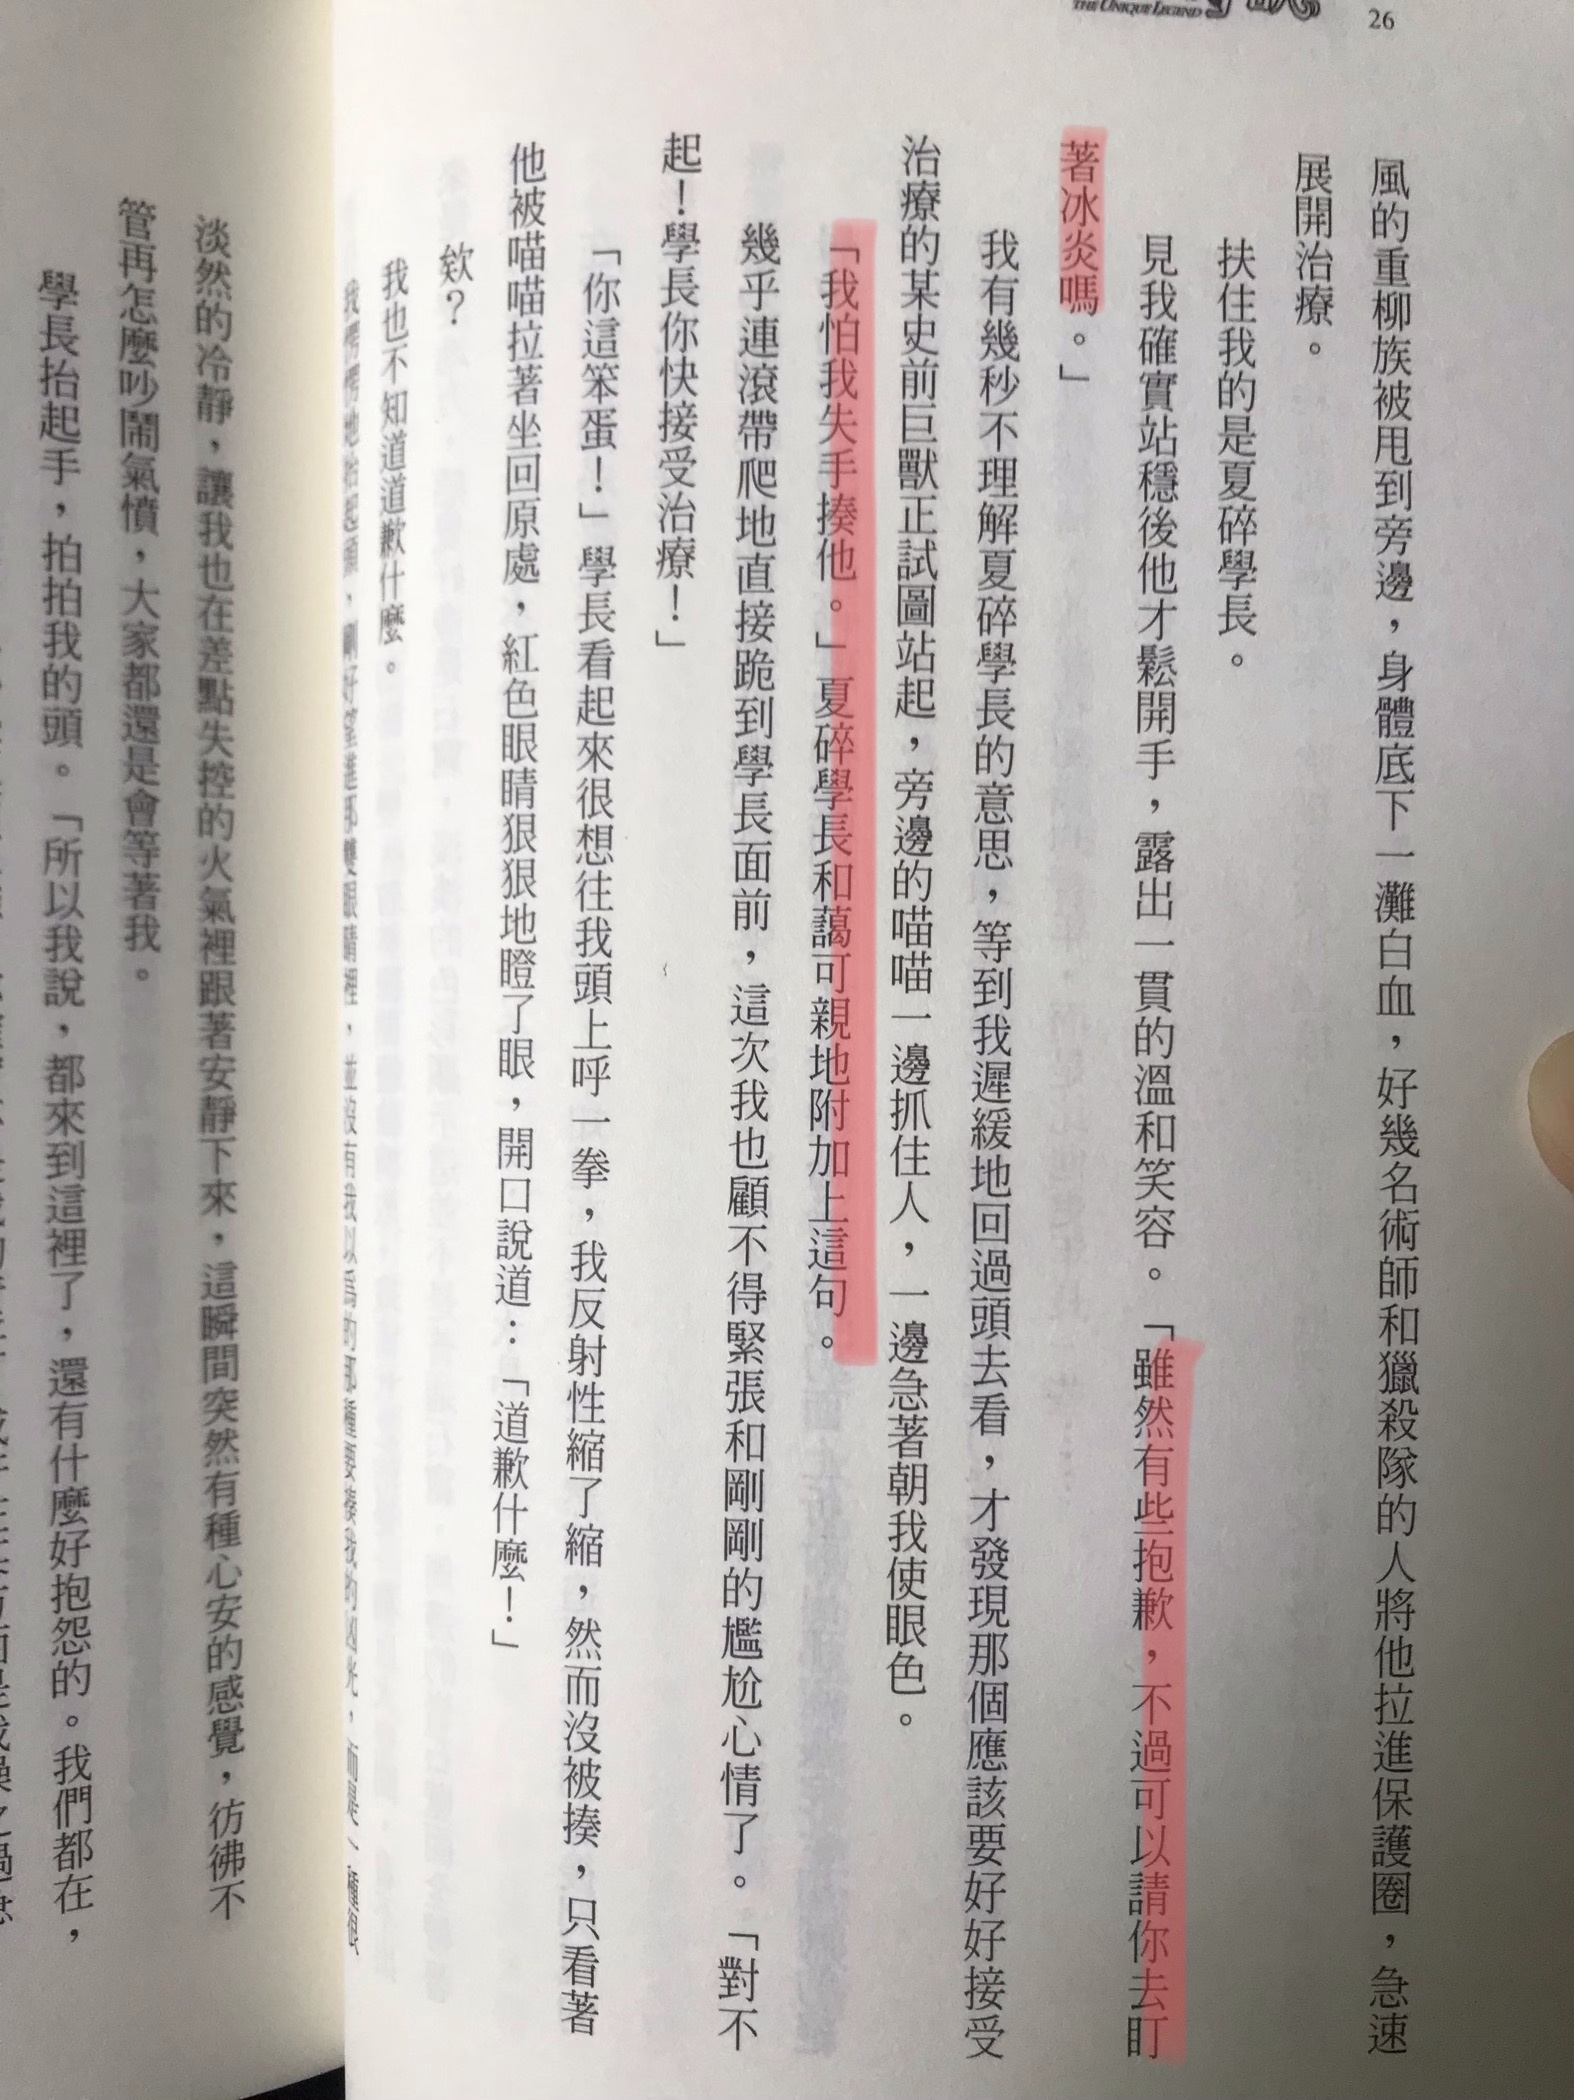 26
THE UNIQUE LEGEND
風的重柳族被甩到旁邊，身體底下一灘白血，好幾名術師和獵殺隊的人將他拉進保護圈，急速
展開治療。
扶住我的是夏碎學長。
見我確實站穩後他才鬆開手，露出一貫的溫和笑容。「雖然有些抱歉，不過可以請你去盯
著冰炎嗎。」
我有幾秒不理解夏碎學長的意思，等到我遲緩地回過頭去看，才發現那個應該要好好接受
治療的某史前巨獸正試圖站起，旁邊的喵喵一邊抓住人，一邊急著朝我使眼色。
「我怕我失手揍他。」夏碎學長和藹可親地附加上這句。
幾乎連滾帶爬地直接跪到學長面前，這次我也顧不得緊張和剛剛的尷尬心情了。「對不
起！學長你快接受治療！」
「你這笨蛋！」學長看起來很想往我頭上呼一拳，我反射性縮了縮，然而沒被揍，只看著
他被喵喵拉著坐回原處，紅色眼睛狠狠地瞪了眼，開口說道：「道歉什麼！」
欸？
我也不知道道歉什麼。
我愣愣地抬起頭，剛好望進那雙眼睛裡，並沒有我以為的那種要揍我的凶光，而是一種很
淡然的冷靜，讓我也在差點失控的火氣裡跟著安靜下來，這瞬間突然有種心安的感覺，彷彿不
管再怎麼吵鬧氣憤，大家都還是會等著我。
學長抬起手，拍拍我的頭。「所以我說，都來到這裡了，還有什麼好抱怨的。我們都在，